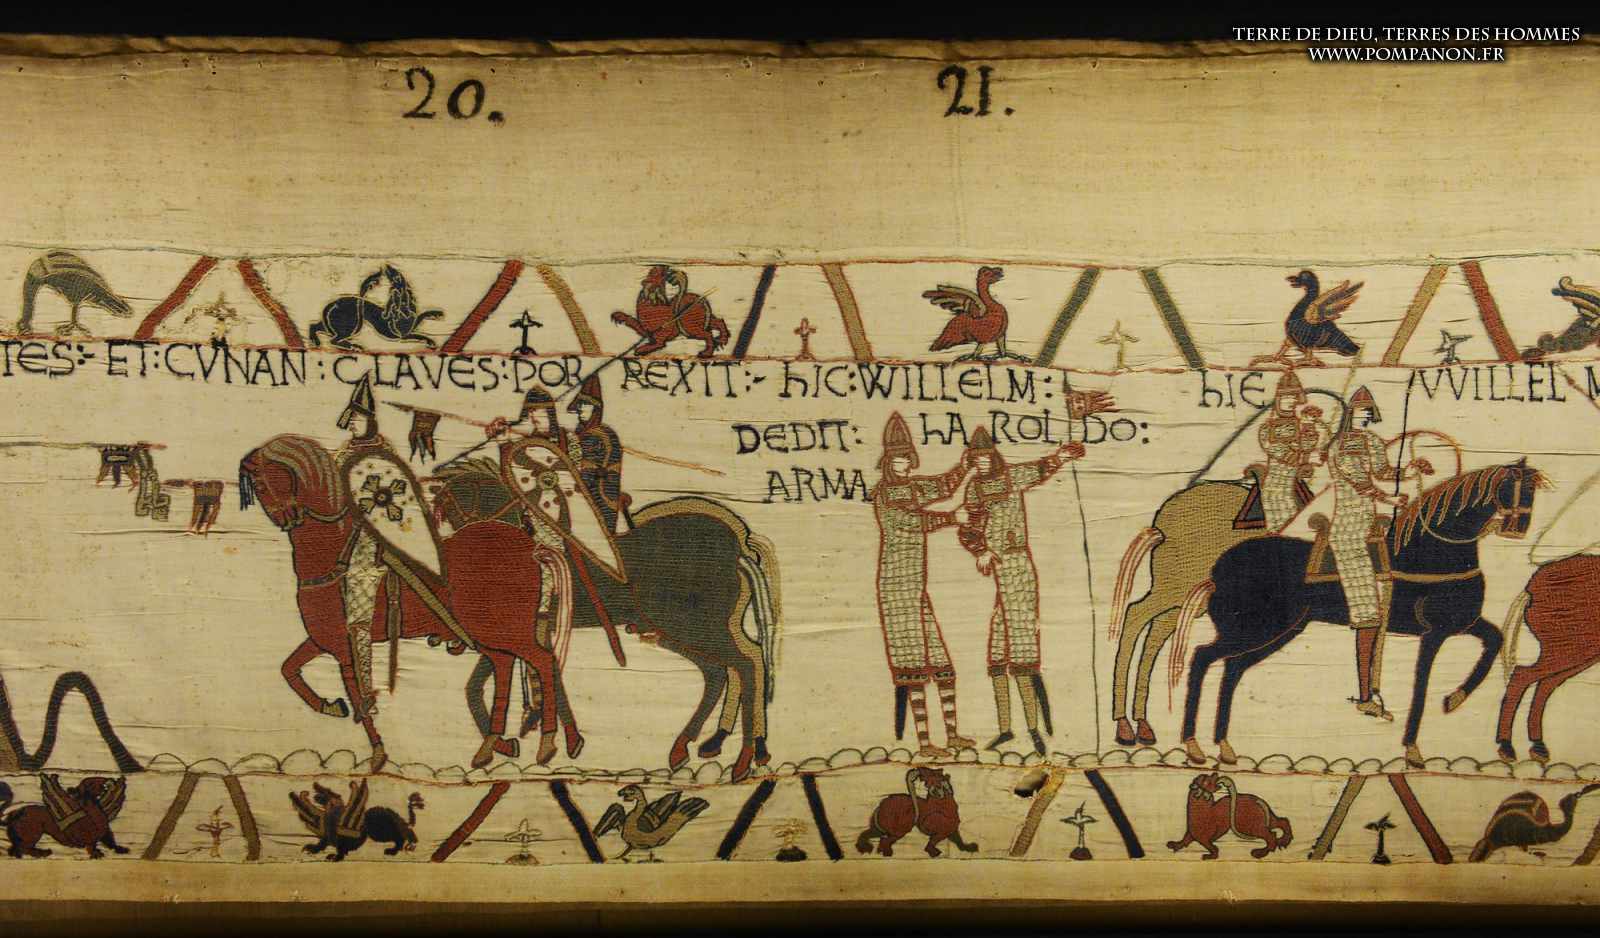 TERRE DE DIEU, TERRES DES HOMMES
WWW.POMPANON.FR
20. 21.
TES:- ET:CVNAN:CLAVES:POR REXIT:- hIC:WILLELM: hIE VVILLELM
DEDIT: hAROLDO:
ARMA